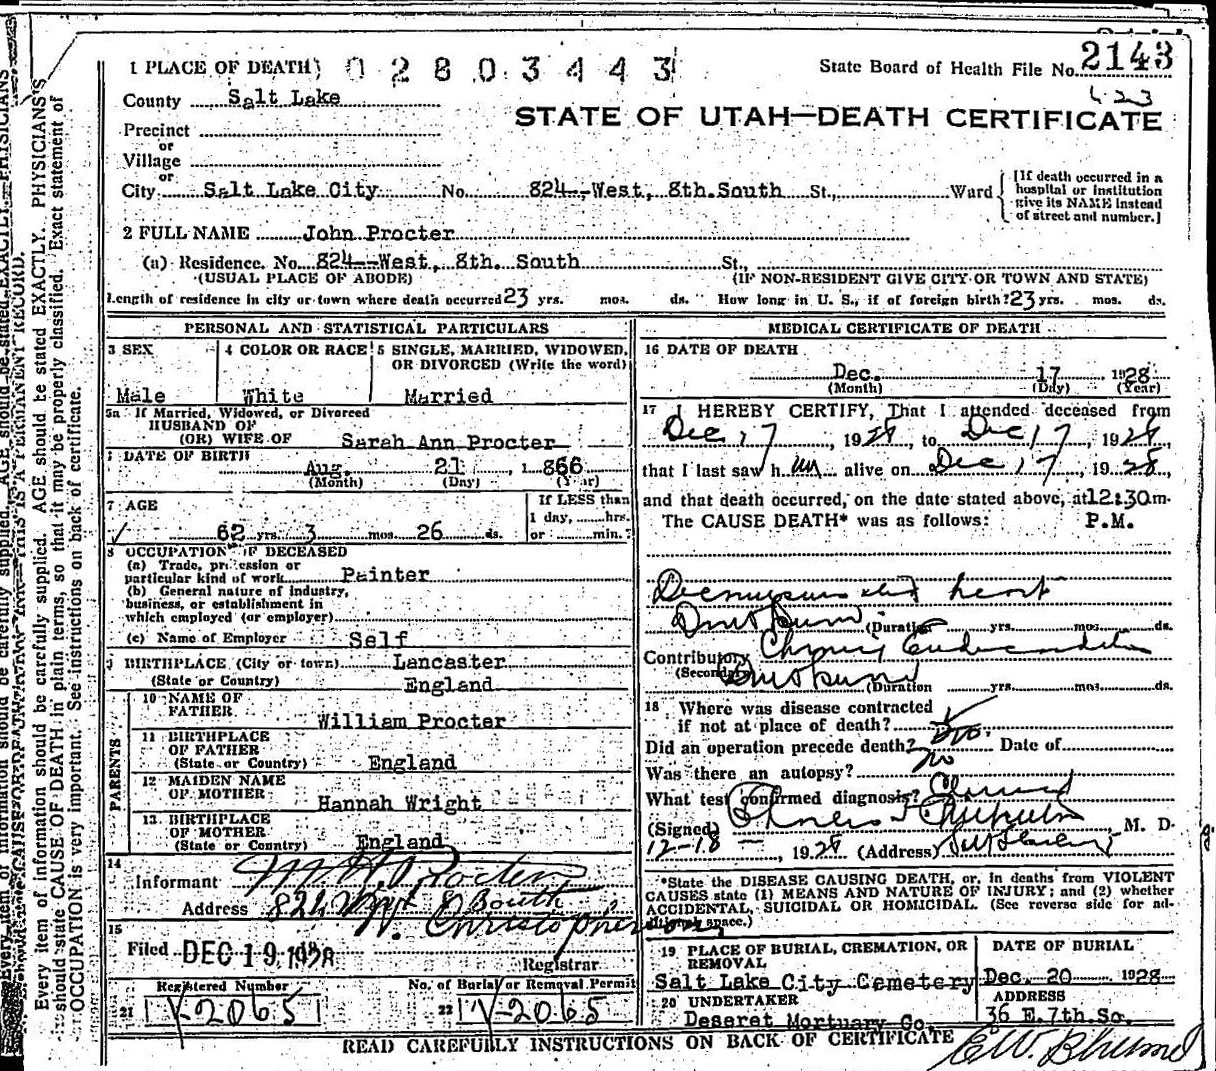 1 PLACE OF DEATH 0 2 8 0 3 4 4 3
State Board of Health File No. 2143
County Salt Lake
423
STATE OF UTAH—DEATH CERTIFICATE
Precinct
or
Village
or
City Salt Lake City No. 824--West, 8th.South St., Ward
[If death occurred in a
hospital or institution
give its NAME instead
of street and number.]
2 FULL NAME John Procter
(a) Residence. No. 824--West, 8th. South St.
(USUAL PLACE OF ABODE) (IF NON-RESIDENT GIVE CITY OR TOWN AND STATE)
Length of residence in city or town where death occurred 23 yrs. mos. ds. How long in U. S., if of foreign birth? 23 yrs. mos. ds.
PERSONAL AND STATISTICAL PARTICULARS
3 SEX 4 COLOR OR RACE 5 SINGLE, MARRIED, WIDOWED,
OR DIVORCED (Write the word)
Male White Married
5a If Married, Widowed, or Divorced
HUSBAND OF
(OR) WIFE OF Sarah Ann Procter
DATE OF BIRTH
Aug. 21, 1866
(Month) (Day) (Year)
7 AGE If LESS than
1 day, hrs.
62 yrs. 3 mos. 26 ds. or min.?
8 OCCUPATION OF DECEASED
(a) Trade, profession or
particular kind of work Painter
(b) General nature of industry,
business, or establishment in
which employed (or employer)
(c) Name of Employer Self
BIRTHPLACE (City or town) Lancaster
(State or Country) England
PARENTS
10 NAME OF
FATHER William Procter
11 BIRTHPLACE
OF FATHER
(State or Country) England
12 MAIDEN NAME
OF MOTHER Hannah Wright
13 BIRTHPLACE
OF MOTHER
(State or Country) England
14
Informant Procter
Address 824 West 8 South
15
Filed DEC 19 1928 W. Christopherson,
Registrar
Registered Number No. of Burial or Removal Permit
21 V-2065 22 V-2065
MEDICAL CERTIFICATE OF DEATH
16 DATE OF DEATH
Dec. 17 1928
(Month) (Day) (Year)
17 I HEREBY CERTIFY, That I attended deceased from
Dec 17, 1928 to Dec 17 1928
that I last saw h im alive on Dec 17, 1928
and that death occurred, on the date stated above, at 12:30 m.
The CAUSE DEATH* was as follows: P.M.
heart
(Duration yrs. mos. ds.
Contributory Chronic Endocarditis
(Secondary) (Duration yrs. mos. ds.
18 Where was disease contracted
if not at place of death?
Did an operation precede death? no Date of
Was there an autopsy? no
What test confirmed diagnosis? Clinical
(Signed) M. D.
12-18, 1928 (Address)
*State the DISEASE CAUSING DEATH, or, in deaths from VIOLENT
CAUSES state (1) MEANS AND NATURE OF INJURY; and (2) whether
ACCIDENTAL, SUICIDAL OR HOMICIDAL. (See reverse side for ad-
ditional space.)
19 PLACE OF BURIAL, CREMATION, OR
REMOVAL
Salt Lake City Cemetery
DATE OF BURIAL
Dec. 20 1928
20 UNDERTAKER
Deseret Mortuary Co.
ADDRESS
36 E. 7th.So.
READ CAREFULLY INSTRUCTIONS ON BACK OF CERTIFICATE
Every item of information should be carefully supplied. AGE should be stated EXACTLY. PHYSICIANS
should state CAUSE OF DEATH in plain terms, so that it may be properly classified. Exact statement of
OCCUPATION is very important. See instructions on back of certificate.